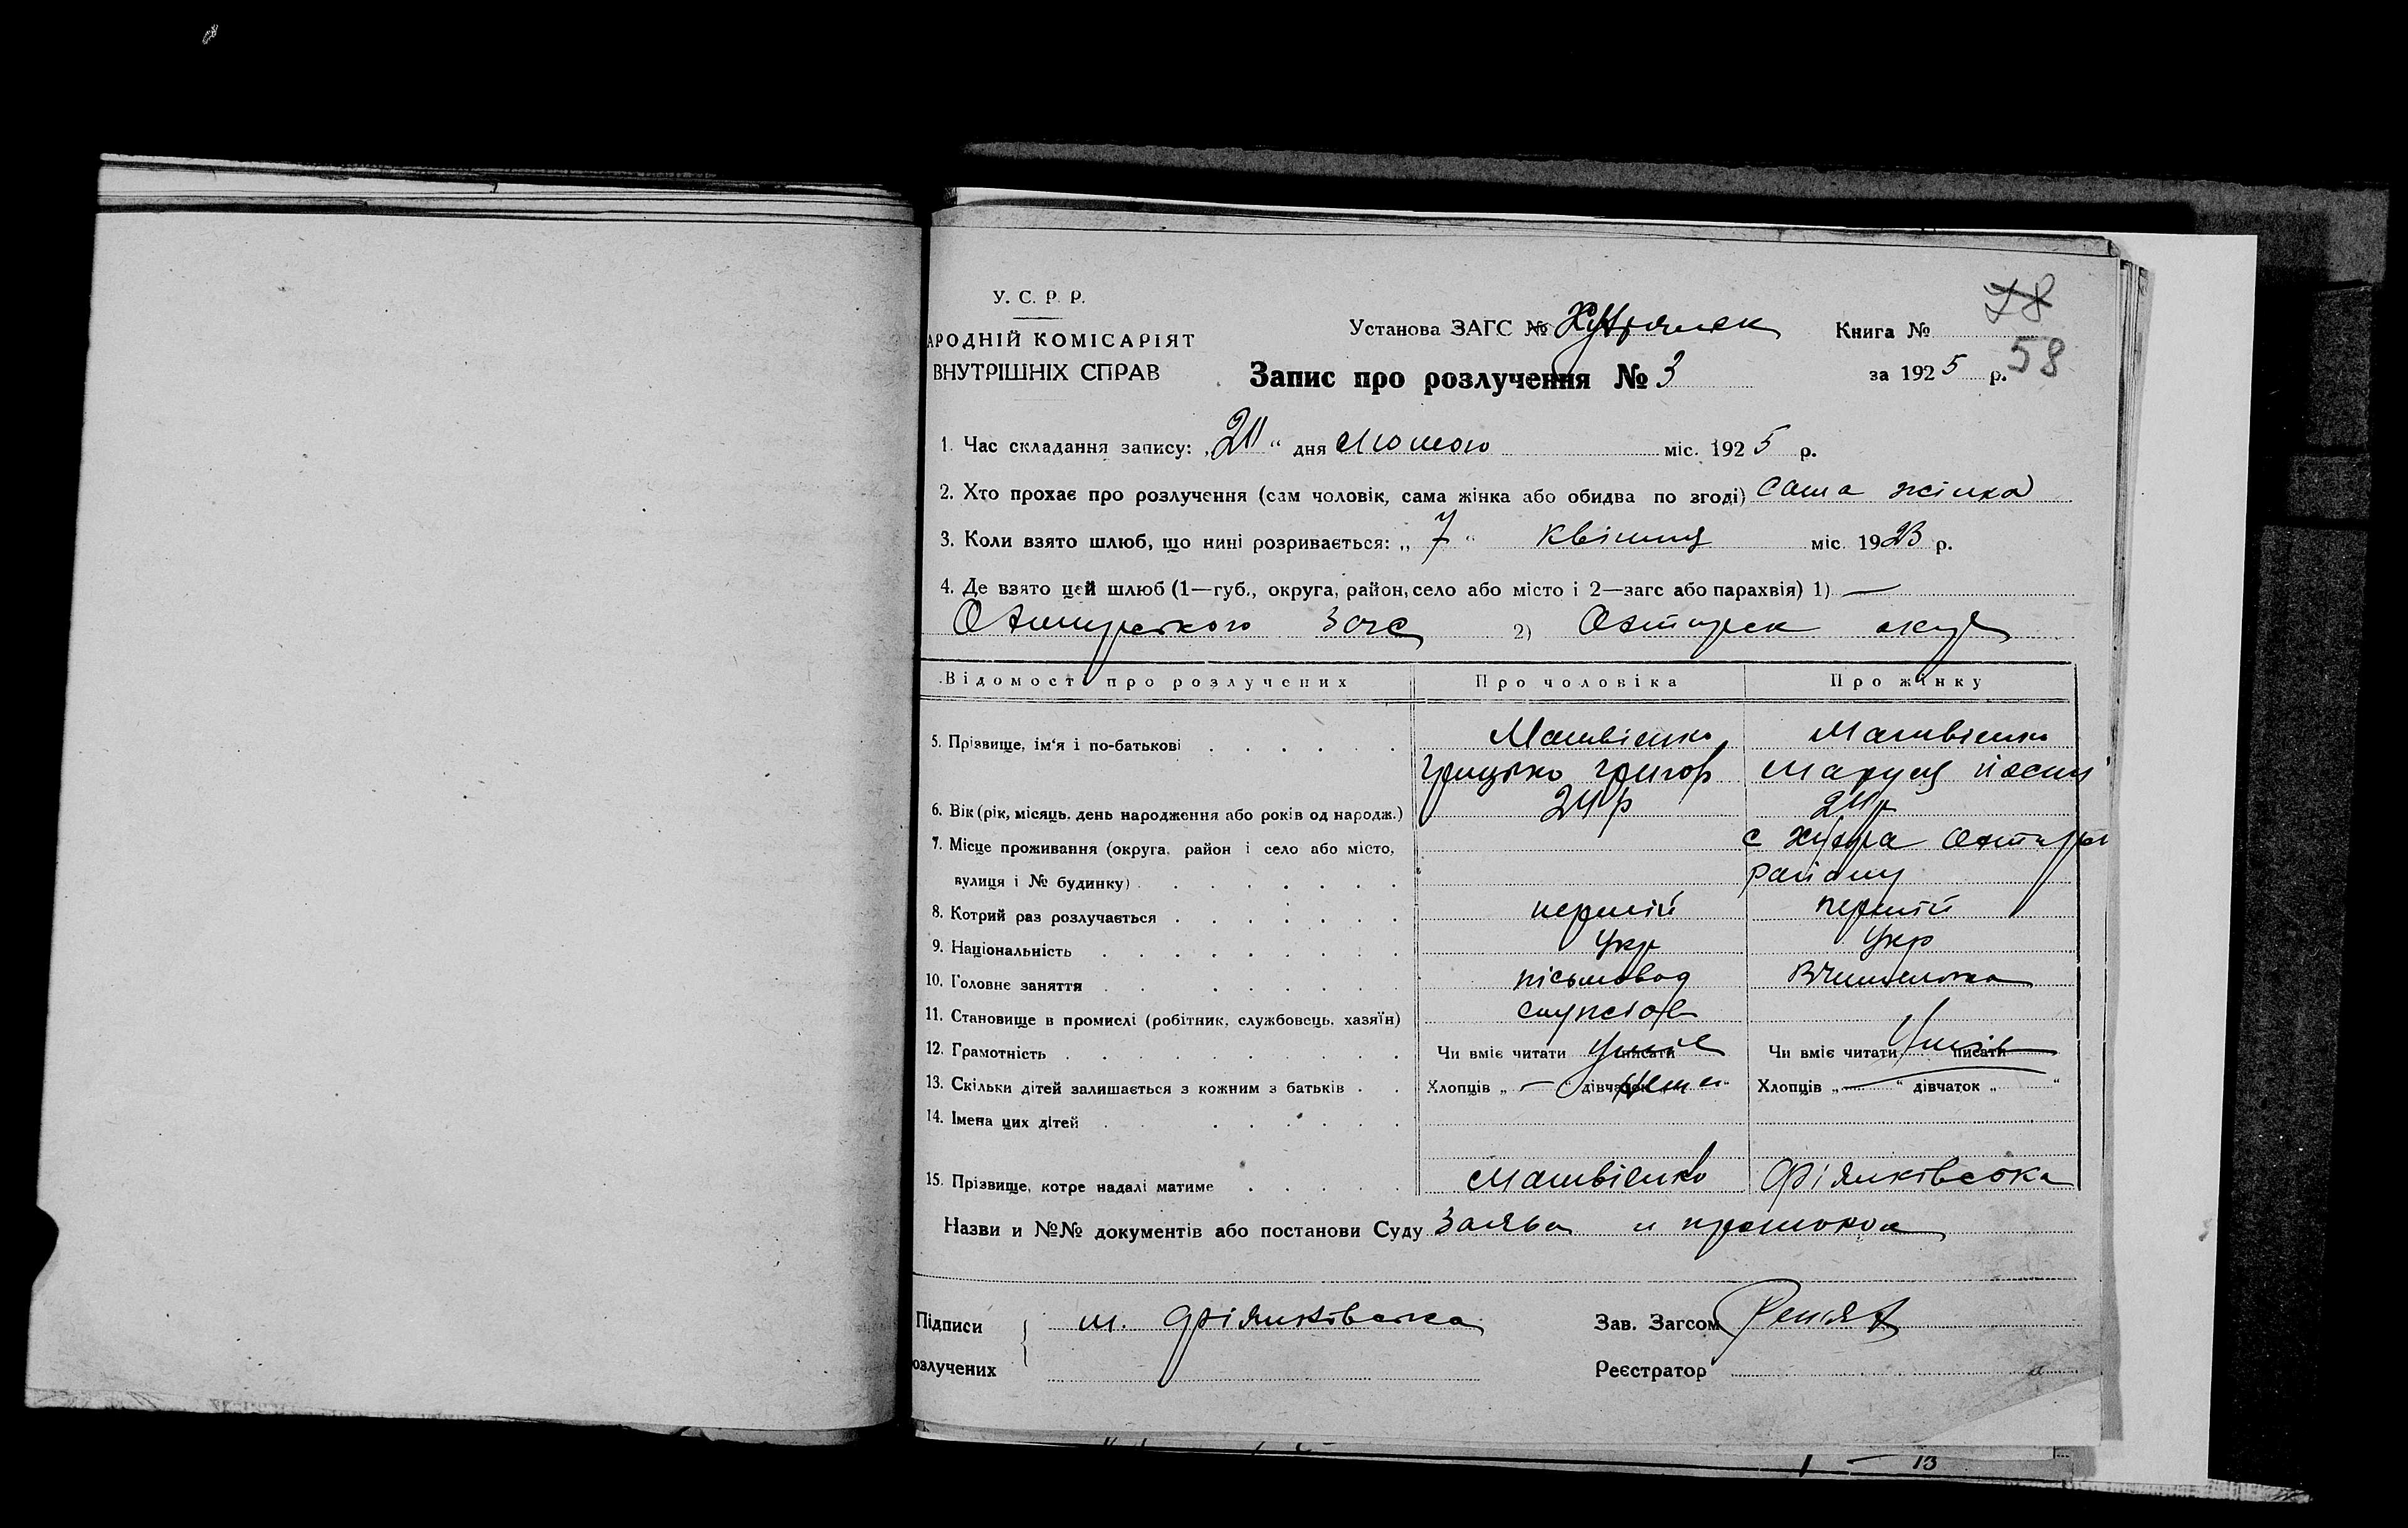 У. С. Р. Р.
АРОДНІЙ КОМІСАРІЯТ
ВНУТРІШНІХ СПРАВ
Установа ЗАГС №
Книга № 78
58
Запис про розлучення № 3
за 1925 р.
1. Час складання запису: „20“ дня Лютого міс. 1925 р.
2. Хто прохає про розлучення (сам чоловік, сама жінка або обидва по згоді) сама жінка
3. Коли взято шлюб, що нині розривається: „7“ квітня міс. 1923 р.
4. Де взято цей шлюб (1—губ., округа, район, село або місто і 2—загс або парахвія) 1) —
Охтирського Загс 2) Охтирск окр
Відомості про розлучених Про чоловіка Про жінку
5. Прізвище, ім'я і по-батькові Матвієнко Матвієнко
Грицько Григор Маруся
6. Вік (рік, місяць, день народження або років од народж.) 24 р 24 р
7. Місце проживання (округа, район і село або місто, с Хухра Охтирск
вулиця і № будинку) району
8. Котрий раз розлучається перший перший
9. Національність Укр Укр
10. Головне заняття пісьмовод Вчителька
11. Становище в промислі (робітник, службовець, хазяїн)
12. Грамотність Чи вміє читати уміє писати Чи вміє читати уміє писати
13. Скільки дітей залишається з кожним з батьків Хлопців „—“ дівчаток „ “ Хлопців „—“ дівчаток „ “
14. Імена цих дітей
15. Прізвище, котре надалі матиме Матвієнко Фіялківська
Назви и №№ документів або постанови Суду Заява и протокол
Підписи м. Фіялківська Зав. Загсом
озлучених Реєстратор
13